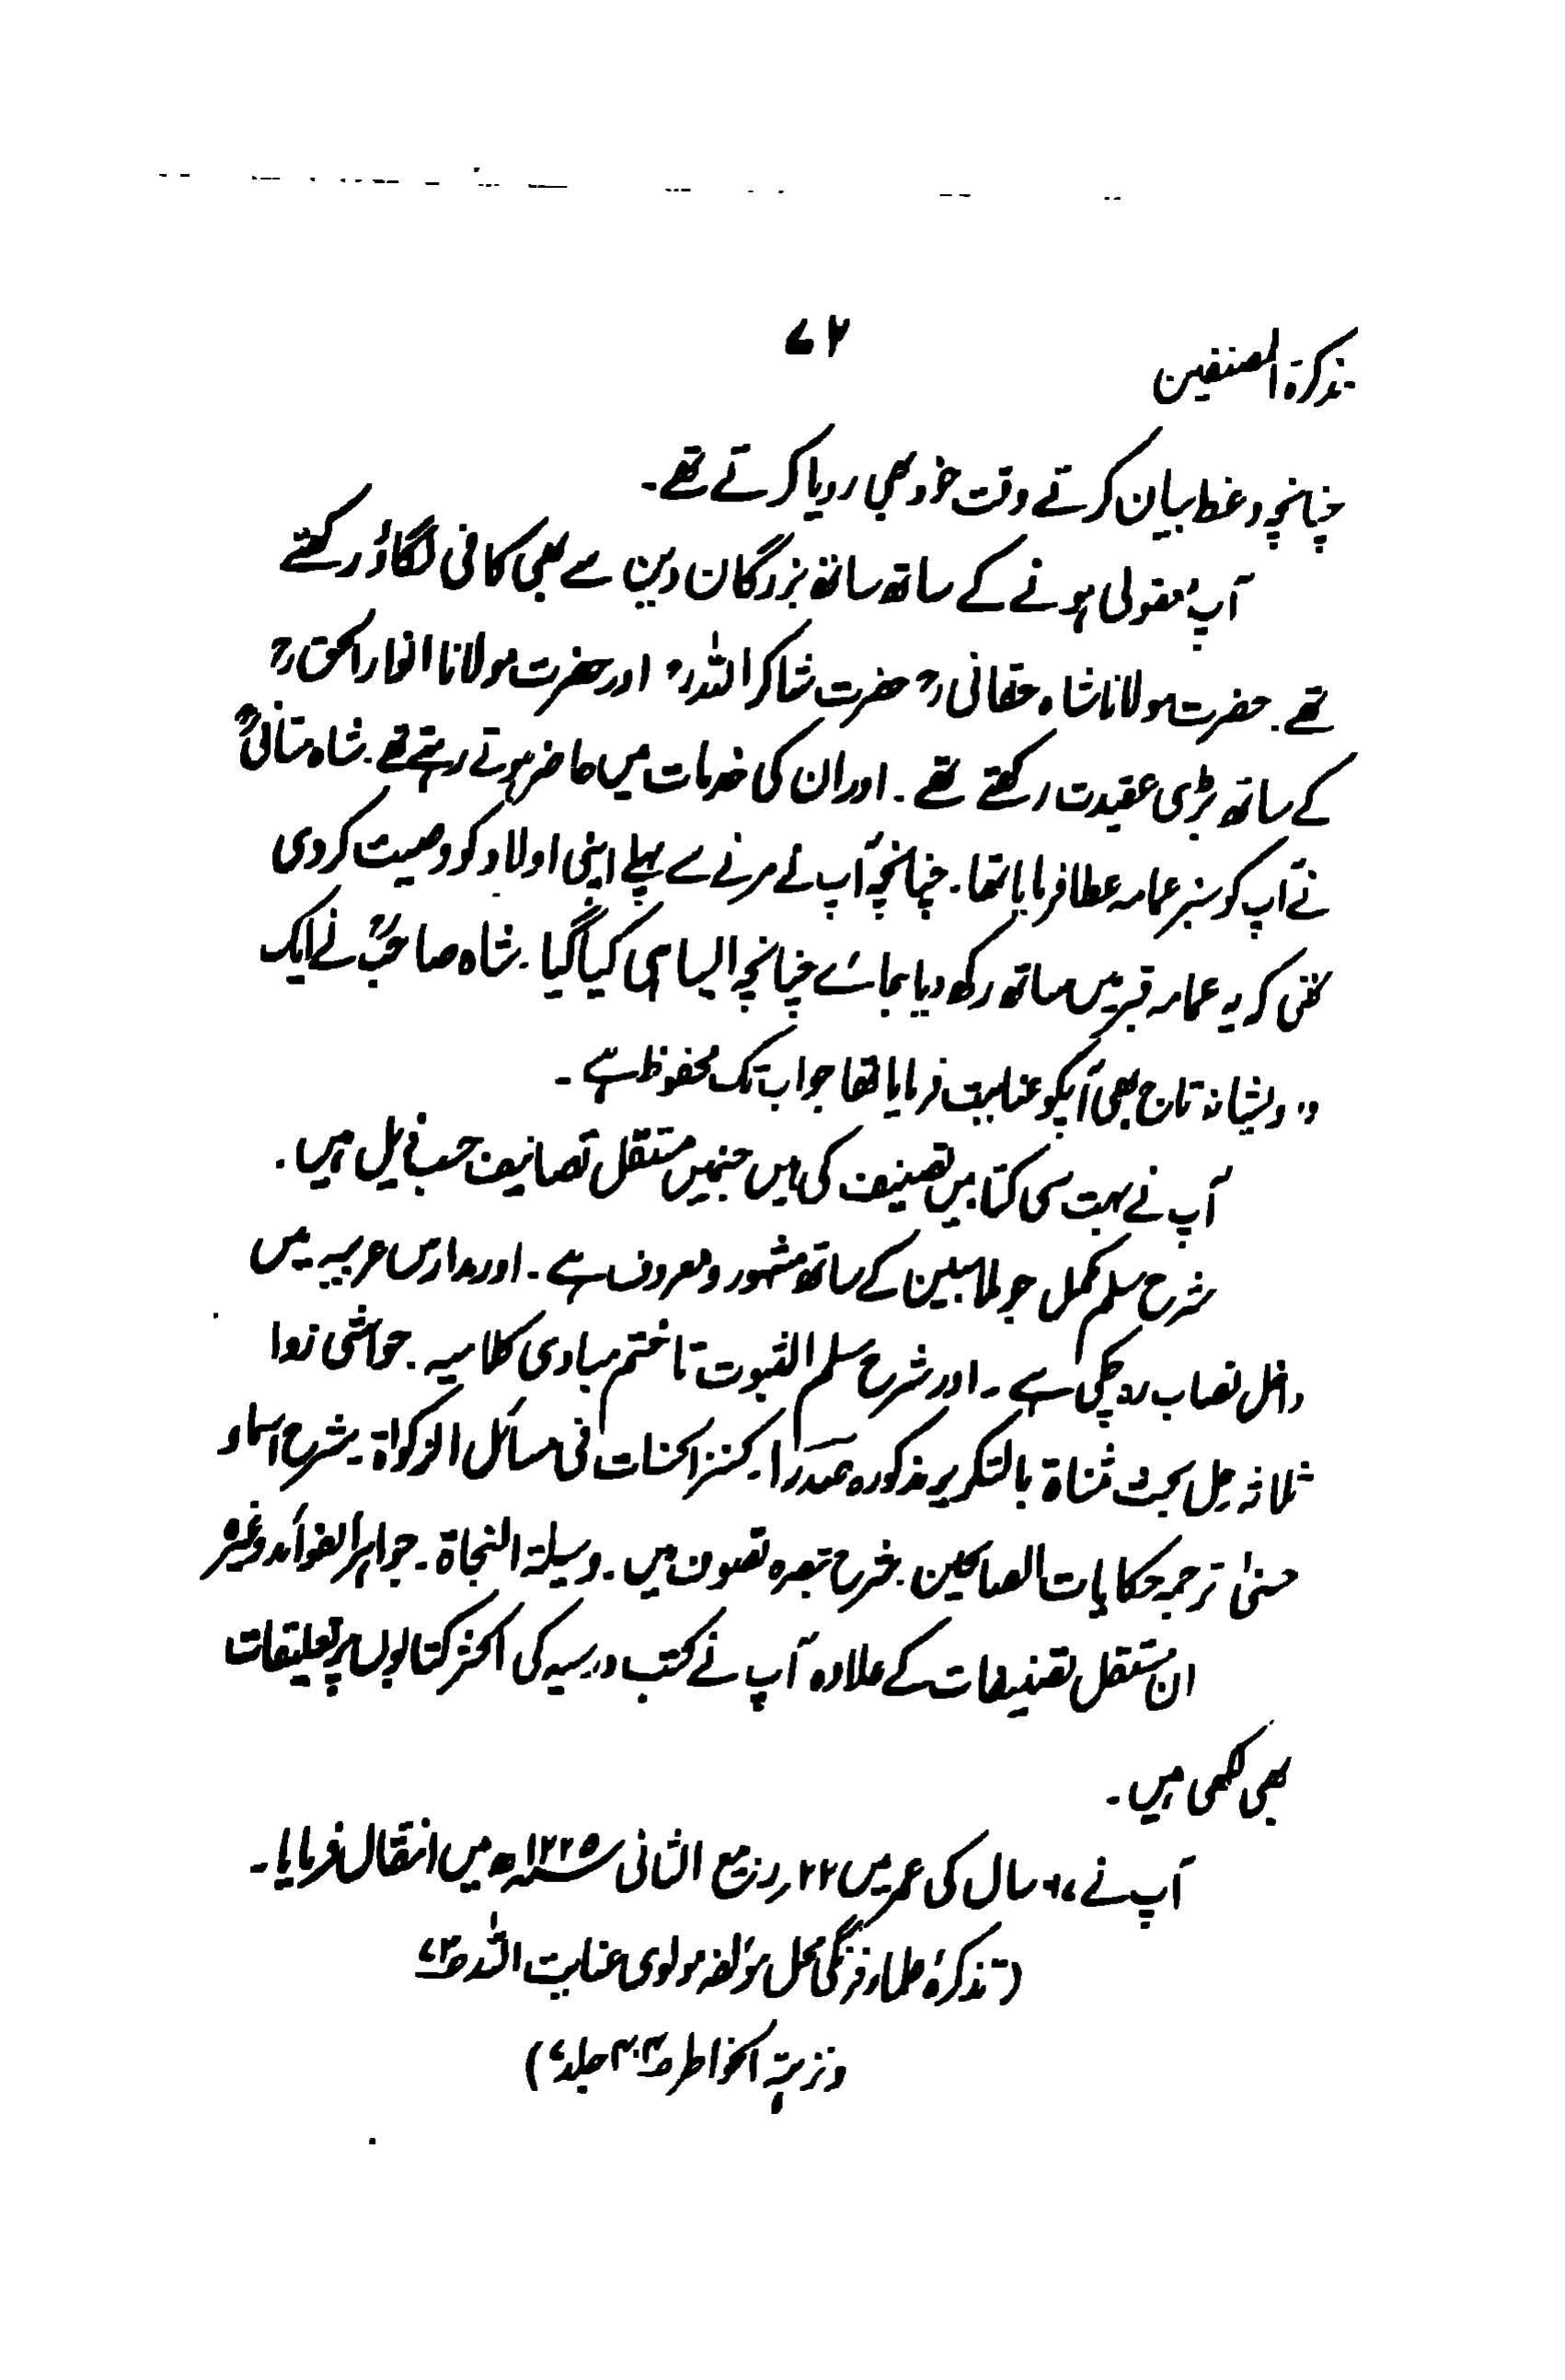 تذکرۃ المصنفین
۷۲
چنانچہ وعظ بیان کرتے وقت خود بھی رو دیا کرتے تھے۔
آپ معقولی ہونے کے ساتھ ساتھ بزرگان دین سے بھی کافی لگاؤ رکھتے
تھے۔ حضرت مولانا شاہ حقانیؒ حضرت شاکر اللہؒ اور حضرت مولانا انوار الحقؒ
کے ساتھ بڑی عقیدت رکھتے تھے۔ اور ان کی خدمات میں حاضر ہوتے رہتے تھے۔ شاہ
نے آپ کو سبز عمامہ عطا فرمایا تھا۔ چنانچہ آپ نے مرنے سے پہلے اپنی اولاد کو وصیت کر دی
تھی کہ یہ عمامہ قبر میں ساتھ رکھ دیا جائے چنانچہ ایسا ہی کیا گیا۔ شاہ صاحبؒ نے ایک
درویشانہ تاج بھی آپکو عنایت فرمایا تھا جو اب تک محفوظ ہے۔
آپ نے بہت سی کتابیں تصنیف کی ہیں جنہیں مستقل تصانیف حسب ذیل ہیں۔
شرح سلم مکمل جو ملا مبین کے ساتھ مشہور و معروف ہے۔ اور مدارس عربیہ میں
داخل نصاب رہ چکی ہے۔ اور شرح مسلم الثبوت تا ختم مبادی کلامیہ۔ حواشی زوا
ثلاثہ حل بحث مثناۃ بالتکریر مذکورہ صدرا۔ کنز الحسنات فی مسائل الزکوٰۃ۔ شرح اسماء
حسنیٰ ترجمہ حکایات الصالحین۔ شرح تبصرہ تصوف میں۔ وسیلۃ النجاۃ۔ جواہر الفوائد وغیرہ
ان مستقل تصنیفات کے علاوہ آپ نے کتب درسیہ کی اکثر کتابوں پر تعلیقات
بھی لکھی ہیں۔
آپ نے سال کی عمر میں ۲۲ ربیع الثانی ۱۲۲۵ھ میں انتقال فرمایا۔
(تذکرۂ علماء فرنگی محل مؤلفہ مولوی عنایت اللہ
ونزہۃ الخواطر ص۴۰۳ جلد۷)